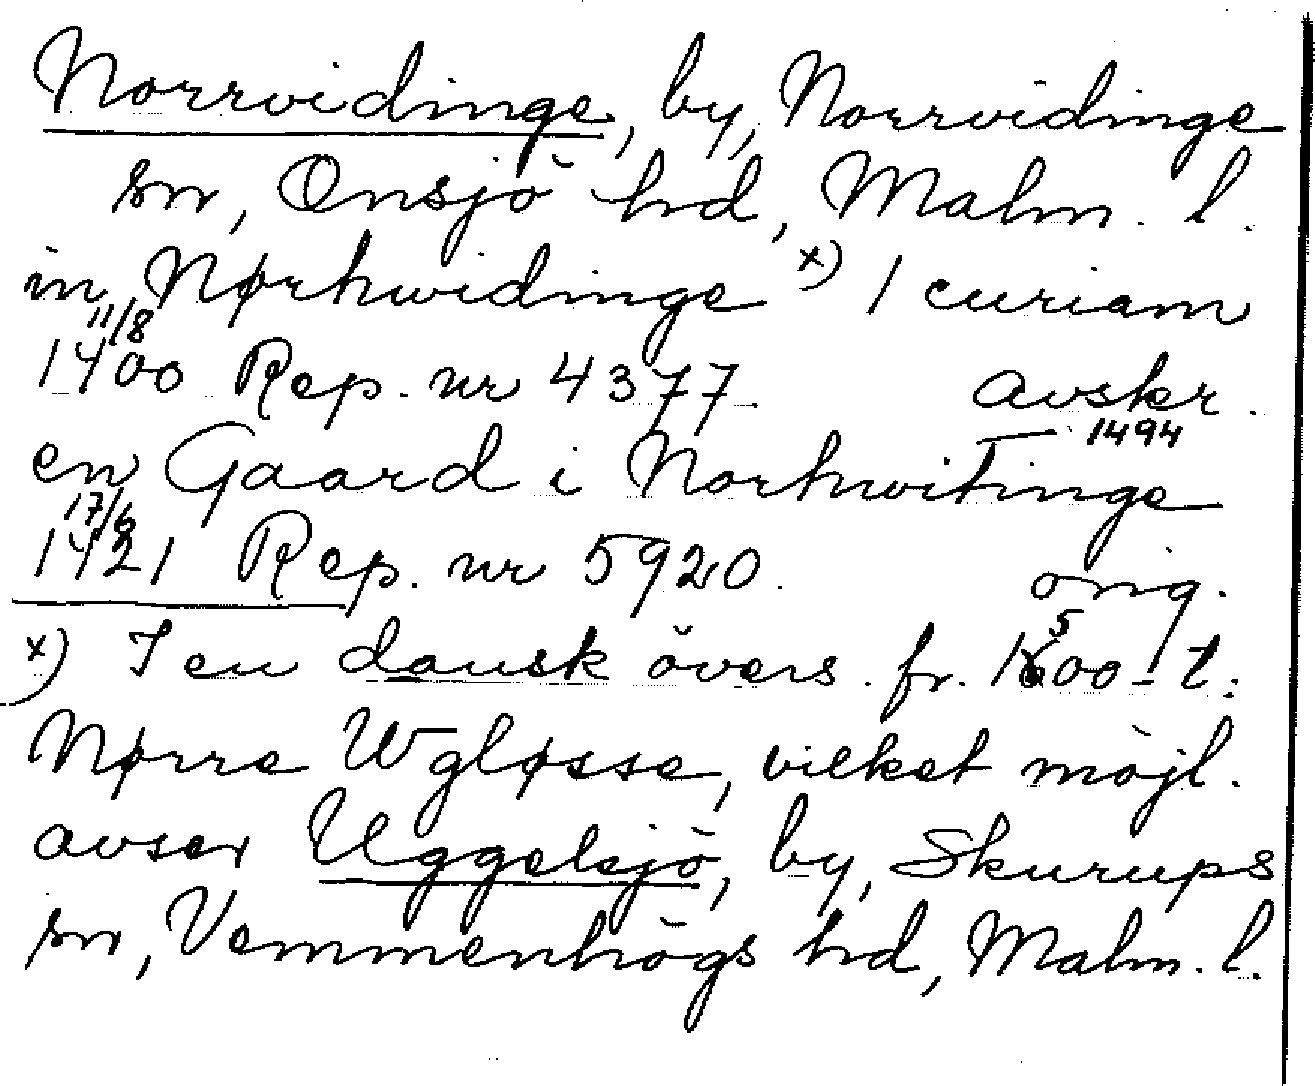 Norrvidinge, by, Norrvidinge
sn, Onsjö hd, Malm. l.
in Nørhwidinge x) 1 curiam
11/8
1400 Rep. nr 4377 avskr.
1494
en Gaard i Norhwitinge
17/6
1421 Rep. nr 5920. orig.
x) I en dansk övers. fr. 1500-t:
Nørre Wgløsse, vilket möjl.
avser Uggelsjö, by, Skurups
sn, Vemmenhögs hd, Malm. l.